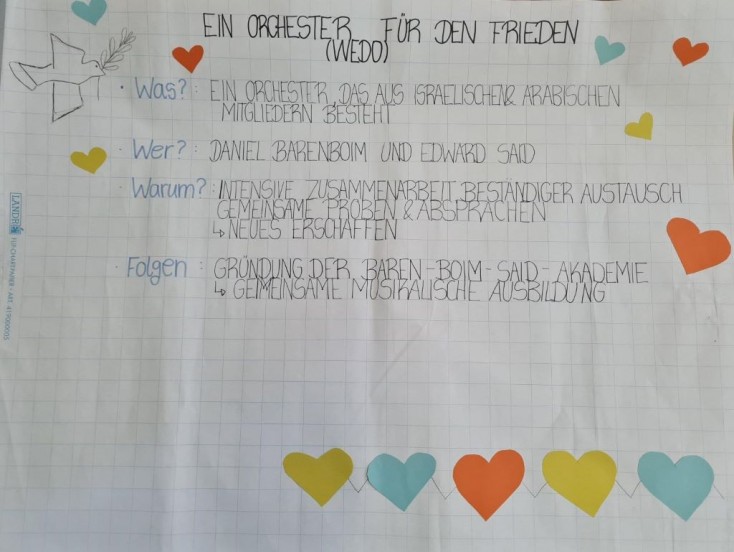 EIN ORCHESTER FÜR DEN FRIEDEN
(WEDO)
· Was? : EIN ORCHESTER, DAS AUS ISRAELISCHEN & ARABISCHEN
MITGLIEDERN BESTEHT
· Wer? : DANIEL BARENBOIM UND EDWARD SAID
· Warum? : INTENSIVE ZUSAMMENARBEIT BESTÄNDIGER AUSTAUSCH
GEMEINSAME PROBEN & ABSPRACHEN
↳ NEUES ERSCHAFFEN
· Folgen : GRÜNDUNG DER BAREN-BOIM-SAID-AKADEMIE
↳ GEIMEINSAME MUSIKALISCHE AUSBILDUNG
LANDRÉ